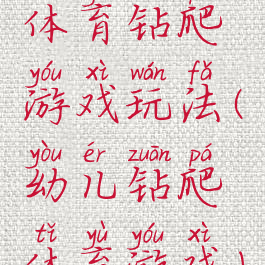 体育钻爬
yóu xì wán fǎ
游戏玩法(
yòu ér zuān pá
幼儿钻爬
tǐ yù yóu xì
体育游戏)